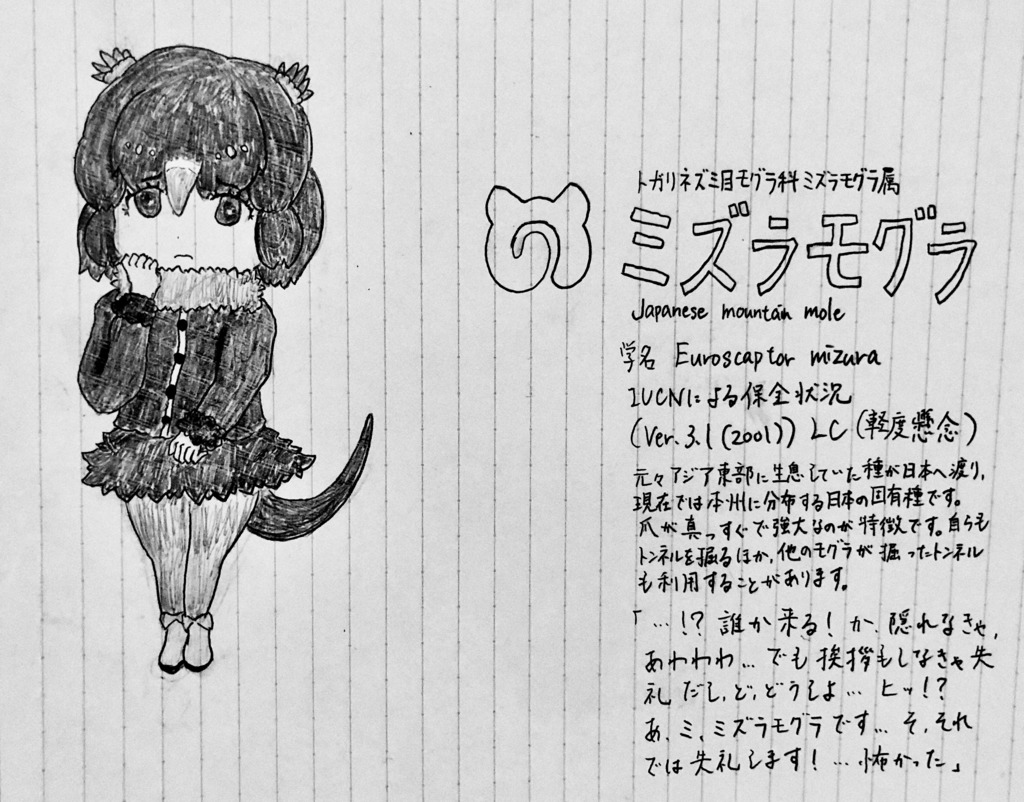 トガリネズミ目モグラ科ミズラモグラ属
ミズラモグラ
Japanese mountain mole
学名 Euroscaptor mizura
IUCNによる保全状況
(Ver.3.1(2001)) LC(軽度懸念)
元々アジア東部に生息していた種が日本へ渡り,
現在では本州に分布する日本の固有種です。
爪が真っすぐで強大なのが特徴です。自らも
トンネルを掘るほか,他のモグラが掘ったトンネル
も利用することがあります。
「…!?誰か来る!か、隠れなきゃ,
あわわわ…でも挨拶もしなきゃ失
礼だし,ど,どうしよ…ヒッ!?
あ、ミ、ミズラモグラです…そ,それ
では失礼します!…怖かった」